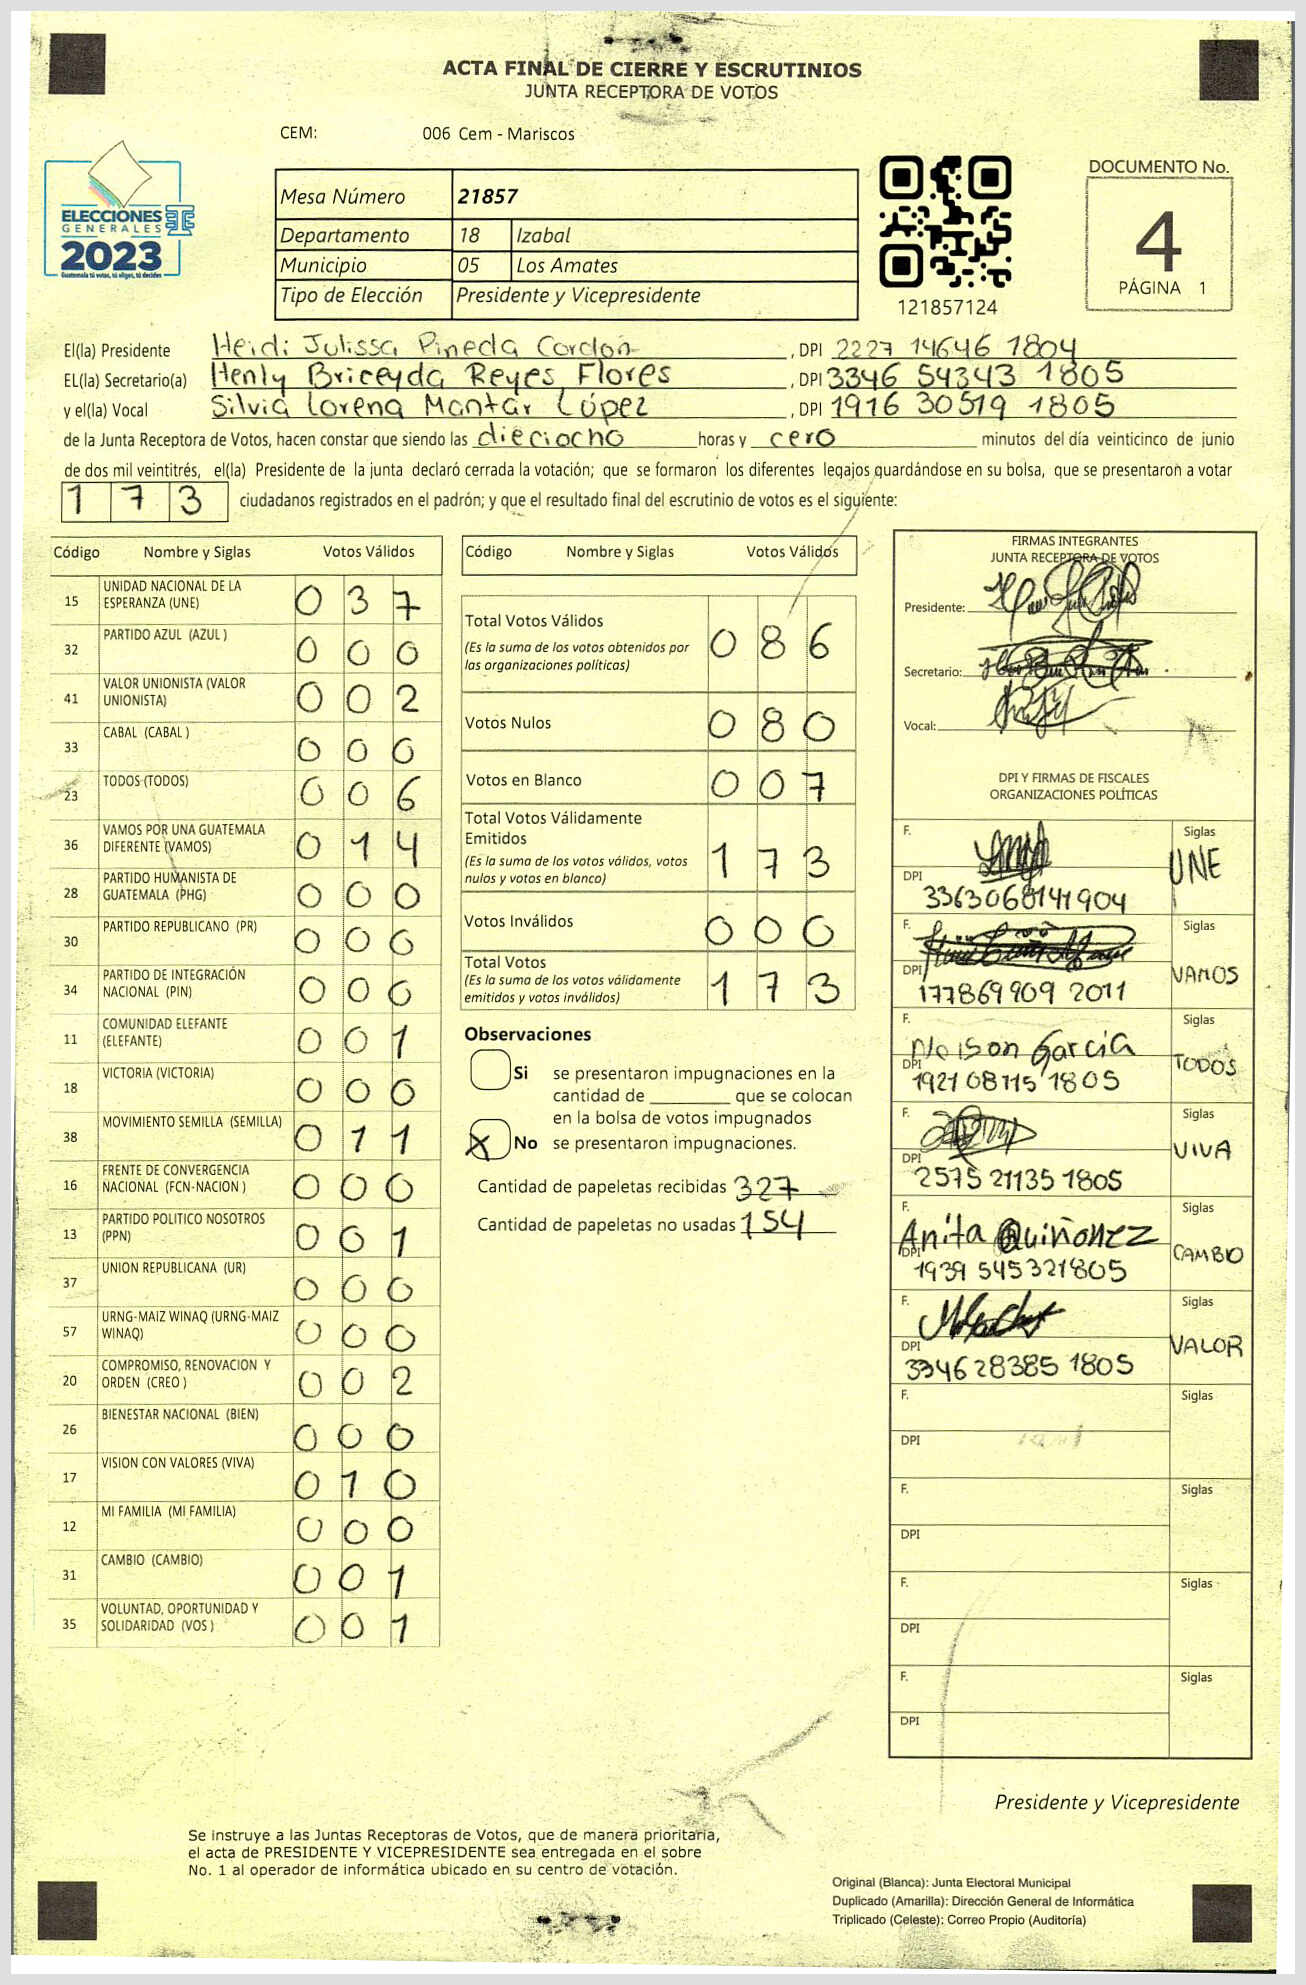 ACTA FINAL DE CIERRE Y ESCRUTINIOS
JUNTA RECEPTORA DE VOTOS
CEM: 006 Cem - Mariscos
ELECCIONES
GENERALES
2023
Guatemala tú votas, tú eliges, tú decides
Mesa Número 21857
Departamento 18 Izabal
Municipio 05 Los Amates
Tipo de Elección Presidente y Vicepresidente
121857124
DOCUMENTO No.
4
PÁGINA 1
El(la) Presidente Heidi Julissa Pineda Cordón, DPI 2227 14646 1804
EL(la) Secretario(a) Henly Briceyda Reyes Flores, DPI 3346 54343 1805
y el(la) Vocal Silvia Lorena Mantar López, DPI 1916 30519 1805
de la Junta Receptora de Votos, hacen constar que siendo las dieciocho horas y cero minutos del día veinticinco de junio
de dos mil veintitrés, el(la) Presidente de la junta declaró cerrada la votación; que se formaron los diferentes legajos guardándose en su bolsa, que se presentaron a votar
1 7 3 ciudadanos registrados en el padrón; y que el resultado final del escrutinio de votos es el siguiente:
Código Nombre y Siglas Votos Válidos
15 UNIDAD NACIONAL DE LA ESPERANZA (UNE) 0 3 7
32 PARTIDO AZUL (AZUL ) 0 0 0
41 VALOR UNIONISTA (VALOR UNIONISTA) 0 0 2
33 CABAL (CABAL ) 0 0 0
23 TODOS (TODOS) 0 0 6
36 VAMOS POR UNA GUATEMALA DIFERENTE (VAMOS) 0 1 4
28 PARTIDO HUMANISTA DE GUATEMALA (PHG) 0 0 0
30 PARTIDO REPUBLICANO (PR) 0 0 0
34 PARTIDO DE INTEGRACIÓN NACIONAL (PIN) 0 0 0
11 COMUNIDAD ELEFANTE (ELEFANTE) 0 0 1
18 VICTORIA (VICTORIA) 0 0 0
38 MOVIMIENTO SEMILLA (SEMILLA) 0 1 1
16 FRENTE DE CONVERGENCIA NACIONAL (FCN-NACION ) 0 0 0
13 PARTIDO POLITICO NOSOTROS (PPN) 0 0 1
37 UNION REPUBLICANA (UR) 0 0 0
57 URNG-MAIZ WINAQ (URNG-MAIZ WINAQ) 0 0 0
20 COMPROMISO, RENOVACION Y ORDEN (CREO ) 0 0 2
26 BIENESTAR NACIONAL (BIEN) 0 0 0
17 VISION CON VALORES (VIVA) 0 1 0
12 MI FAMILIA (MI FAMILIA) 0 0 0
31 CAMBIO (CAMBIO) 0 0 1
35 VOLUNTAD, OPORTUNIDAD Y SOLIDARIDAD (VOS ) 0 0 1
Código Nombre y Siglas Votos Válidos
Total Votos Válidos 0 8 6
(Es la suma de los votos obtenidos por
las organizaciones políticas)
Votos Nulos 0 8 0
Votos en Blanco 0 0 7
Total Votos Válidamente
Emitidos 1 7 3
(Es la suma de los votos válidos, votos
nulos y votos en blanco)
Votos Inválidos 0 0 0
Total Votos 1 7 3
(Es la suma de los votos válidamente
emitidos y votos inválidos)
Observaciones
Si se presentaron impugnaciones en la
cantidad de ________ que se colocan
en la bolsa de votos impugnados
X No se presentaron impugnaciones.
Cantidad de papeletas recibidas 327
Cantidad de papeletas no usadas 154
FIRMAS INTEGRANTES
JUNTA RECEPTORA DE VOTOS
Presidente:
Secretario:
Vocal:
DPI Y FIRMAS DE FISCALES
ORGANIZACIONES POLÍTICAS
F. Siglas
UNE
DPI 3363068141904
F. Siglas
VAMOS
DPI 177869909 2011
F. Siglas
Nelson García TODOS
DPI 1921 08115 1805
F. Siglas
VIVA
DPI 2575 21135 1805
F. Siglas
Anita Quiñonez CAMBIO
DPI 1939 545321805
F. Siglas
VALOR
DPI 334628385 1805
F. Siglas
DPI
F. Siglas
DPI
F. Siglas
DPI
F. Siglas
DPI
Presidente y Vicepresidente
Se instruye a las Juntas Receptoras de Votos, que de manera prioritaria,
el acta de PRESIDENTE Y VICEPRESIDENTE sea entregada en el sobre
No. 1 al operador de informática ubicado en su centro de votación.
Original (Blanca): Junta Electoral Municipal
Duplicado (Amarilla): Dirección General de Informática
Triplicado (Celeste): Correo Propio (Auditoría)